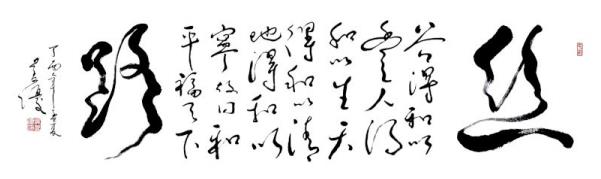 丝
谷得和以
盈人得
和以生天
得和以清
地得和以
寧和
平福天下
路
丁酉年夏